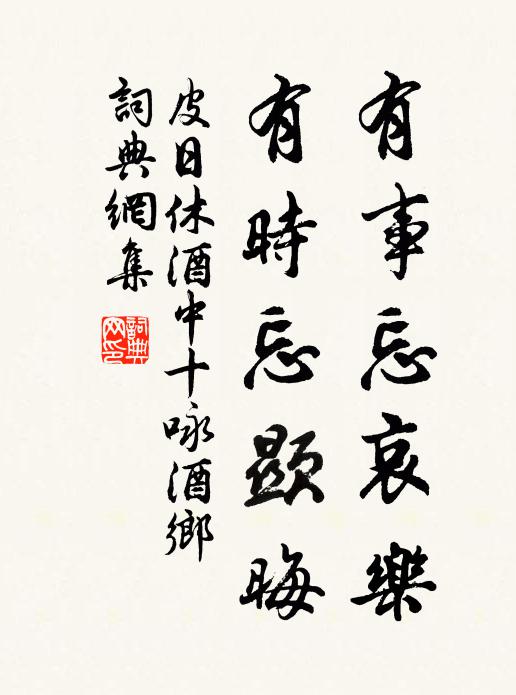 有事忘哀樂
有時忘顯晦
皮日休酒中十咏酒鄉
詞典網集
詞典
网印